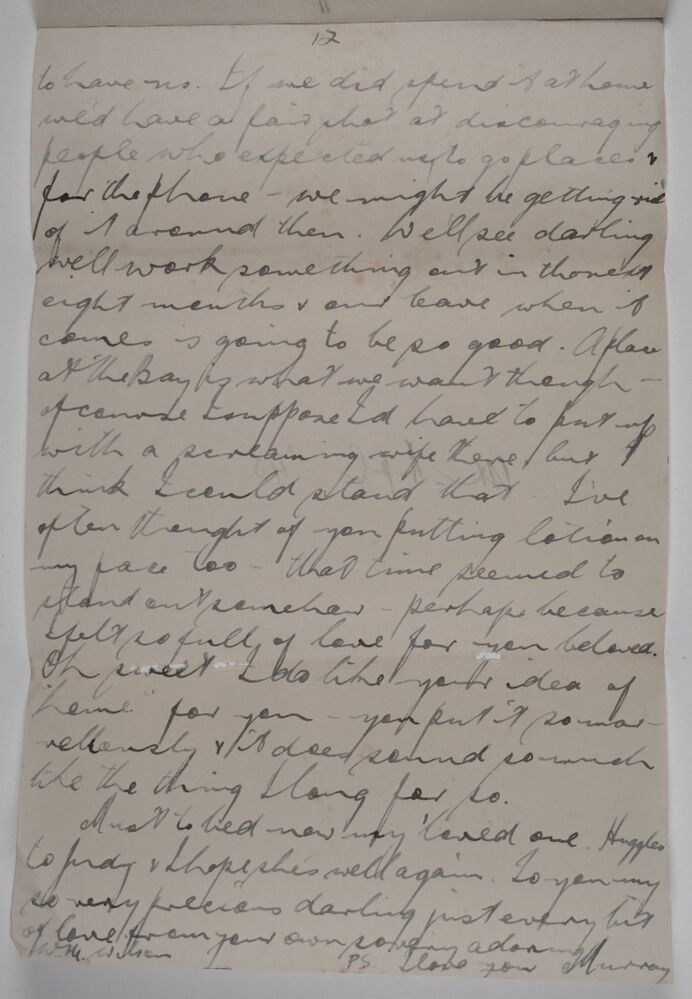 12
to have no. If we did spend it at home
we'd have a fair shot at discouraging
people who expected us to go places &
for the phone - we might be getting rid
of it around then. We'll see darling
we'll work something out in the next
eight months & our leave when it
comes is going to be so good. A place
at the Bay is what we want though -
of course I suppose I'd have to put up
with a screaming wife there, but I
think I could stand that. I've
often thought of you putting lotion on
my face too - that time seemed to
stand out somehow - perhaps because
I felt so full of love for you beloved.
Oh sweet I do like your idea of
"home" for you - you put it so mar-
vellously & it does sound so much
like the thing I long for so.
Must to bed now my loved one. Huggles
to Judy & I hope she's well again. To you my
so very precious darling just every bit
of love from your own so very adoring
W.M. Wilson PS I love you Murray